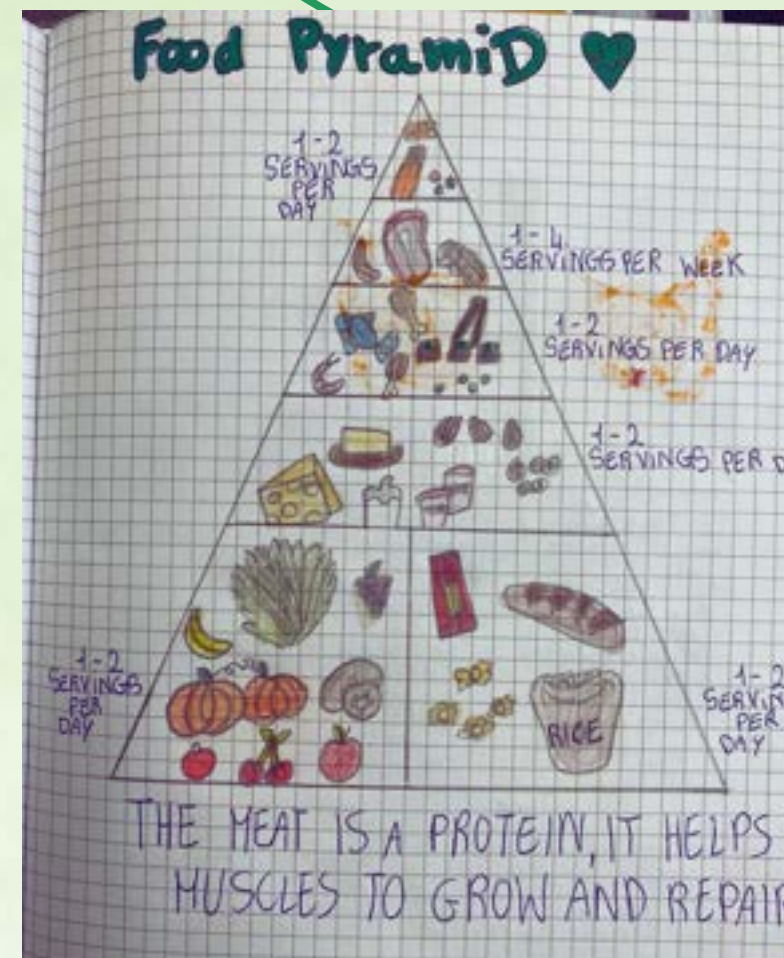 Food PyramiD
1-2
SERVINGS
PER
DAY
1-4
SERVINGS PER WEEK
1-2
SERVINGS PER DAY
1-2
SERVINGS PER D
1-2
SERVINGS
PER
DAY
1-2
SERVIN
PER
DAY
RICE
THE MEAT IS A PROTEIN, IT HELPS
MUSCLES TO GROW AND REPAIR